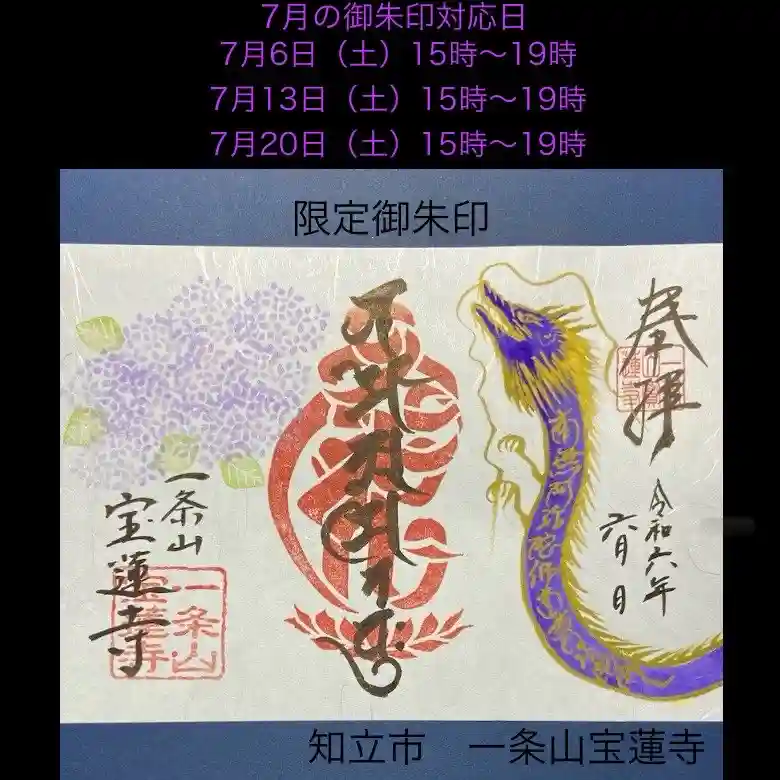 7月の御朱印対応日
7月6日（土）15時〜19時
7月13日（土）15時〜19時
7月20日（土）15時〜19時
限定御朱印
奉拝
令和六年
六月 日
南無阿弥陀仏南無
一条山
宝蓮寺
一条山
宝蓮寺
知立市　一条山宝蓮寺